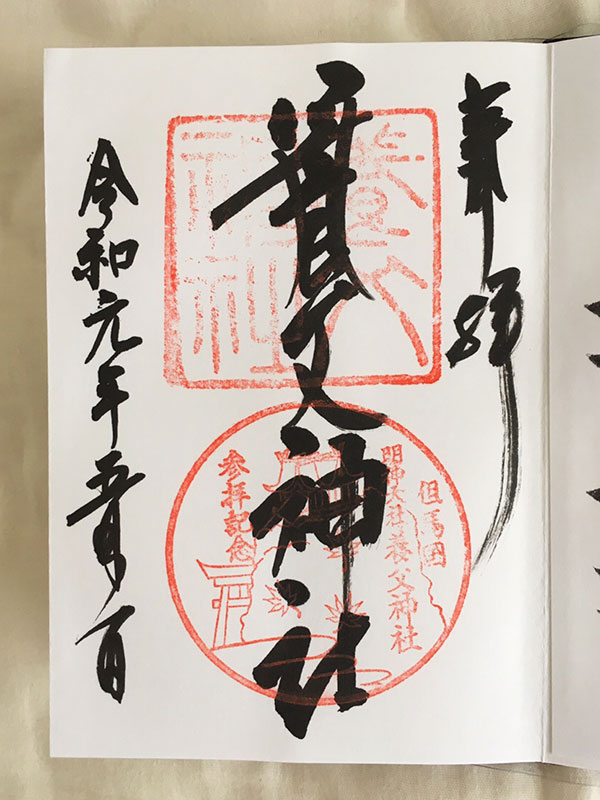 奉拝
養父神社
令和元年五月一日
養父
神社
但馬国
明神大社養父神社
参拝記念